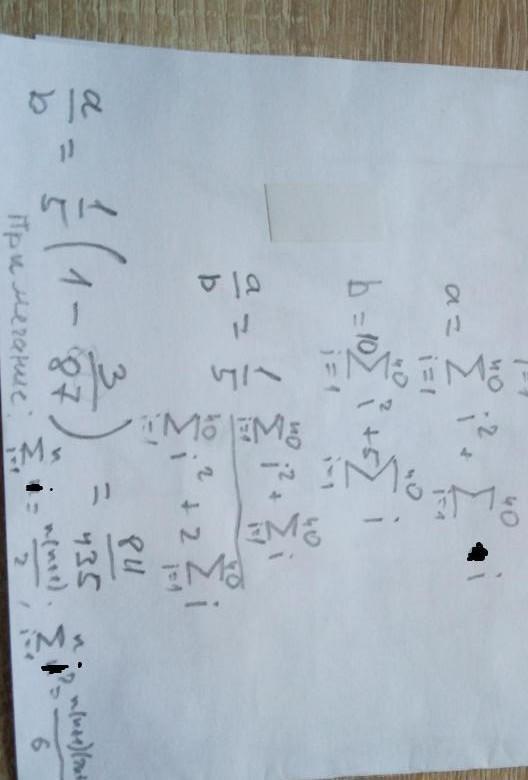 i=1
a = \sum_{i=1}^{40} i^2 + \sum_{i=1}^{40} i
b = 10 \sum_{i=1}^{40} i^2 + 5 \sum_{i=1}^{40} i
\frac{a}{b} = \frac{1}{5} \frac{\sum_{i=1}^{40} i^2 + \sum_{i=1}^{40} i}{\sum_{i=1}^{40} i^2 + 2 \sum_{i=1}^{40} i}
\frac{a}{b} = \frac{1}{5} (1 - \frac{3}{87}) = \frac{84}{435}
Примечание: \sum_{i=1}^{n} = \frac{n(n+1)}{2}; \sum_{i=1}^{n} ^2 = \frac{n(n+1)(2n+}{6}